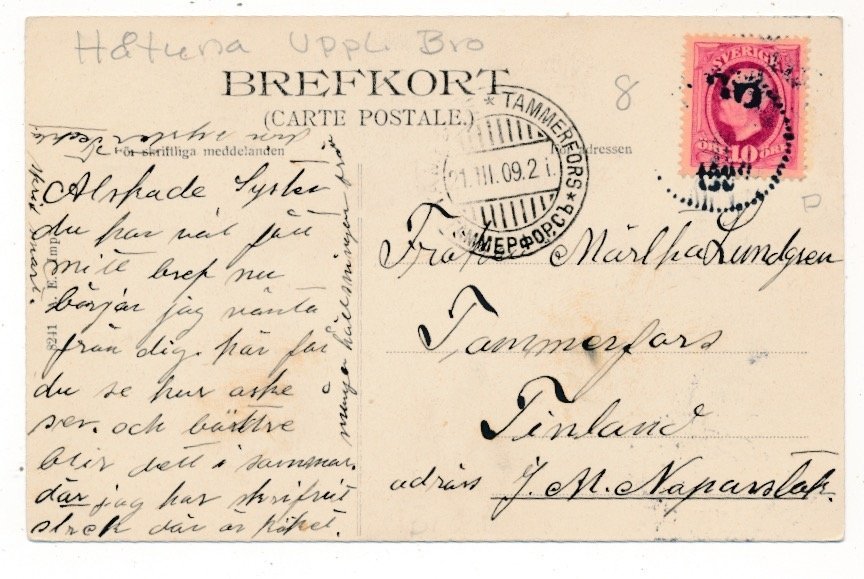 Håtuna Uppl. Bro
8
BREFKORT
(CARTE POSTALE.)
För skriftliga meddelanden
För adressen
SVERIGE
ÖRE 10 ÖRE
* TAMMERFORS *
21.III.09.2 i.
ТАММЕРФОРСЪ
Alskade Syster
du har väl fått
mitt bref nu
börjar jag vänta
från dig. här får
du se hur aske
ser. och bättre
blir dett i sommar.
där jag har skrifvit
streck där är köket.
många hälsningar från
din syster
skriv snart.
8241
Fröken Märtha Lundgren
Tammerfors
Finland
adräss J. M. Naparstok.